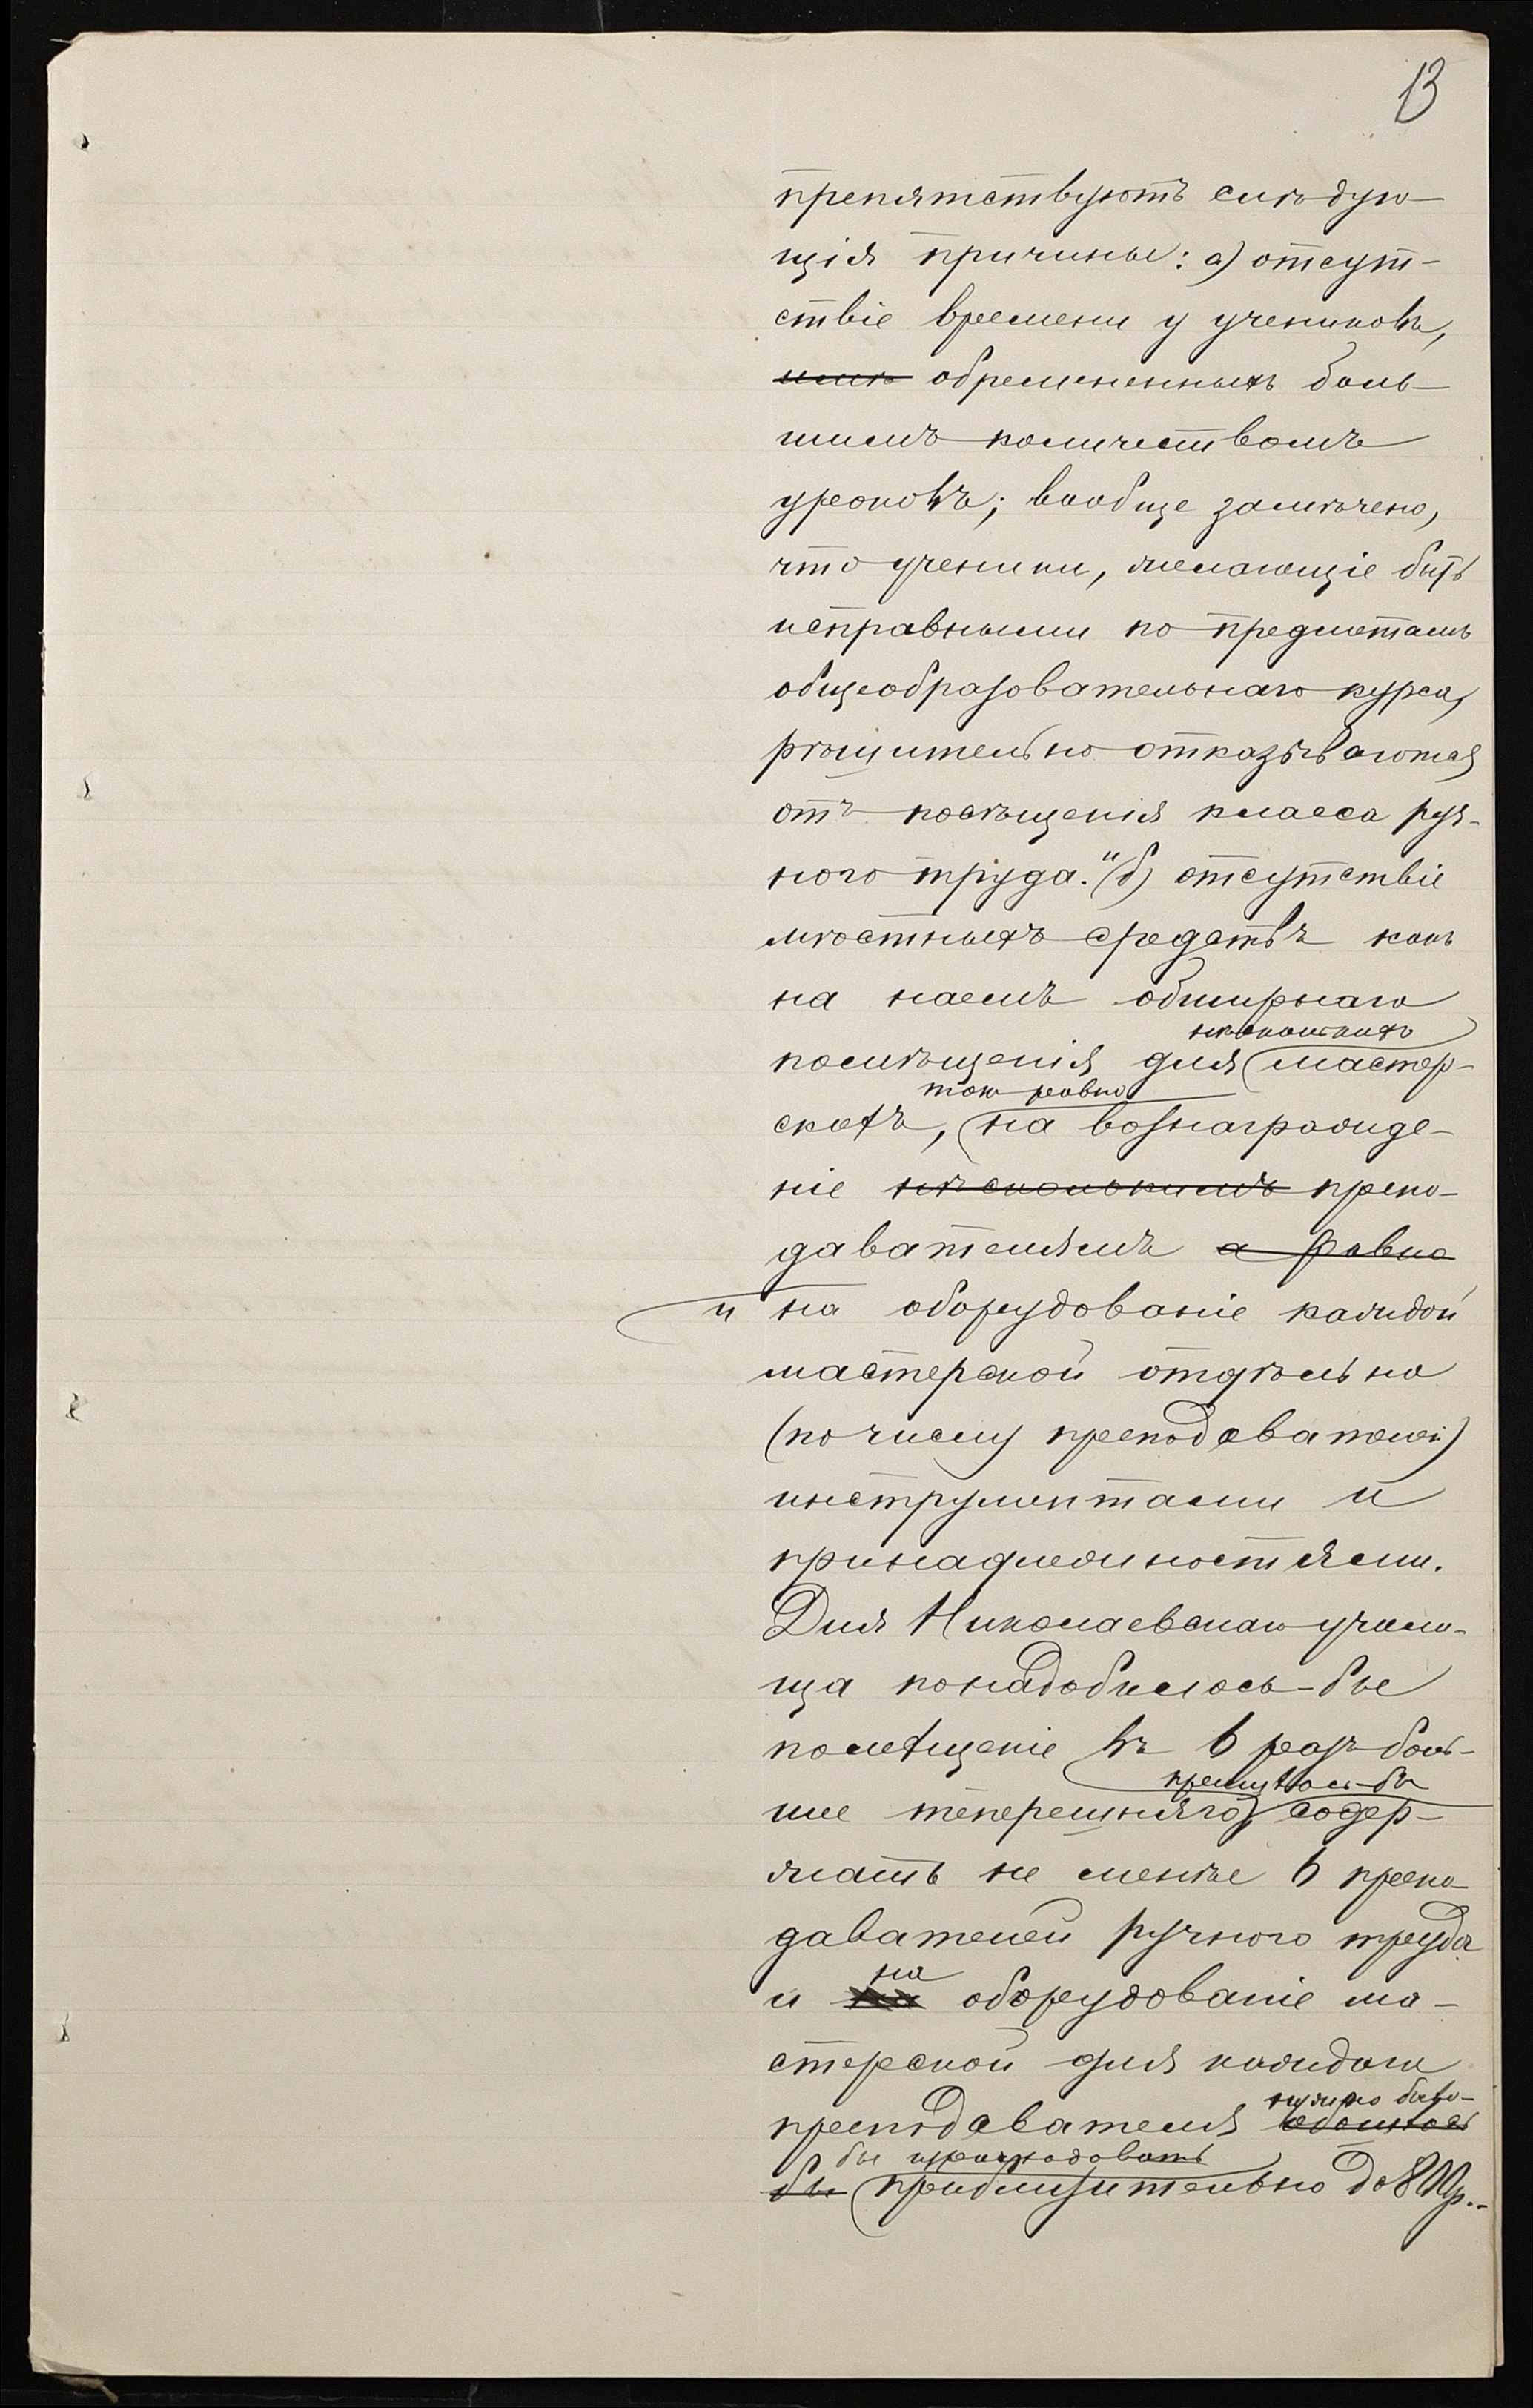 13
препятствуютъ слѣдую-
щія причины: а) отсут-
ствіе времени у учениковъ,
обремененныхъ боль-
шимъ количествомъ
уроковъ; вообще замѣчено,
что ученики, желающіе быть
исправными по предметамъ
общеобразовательнаго курса,
рѣшительно отказываются
отъ посѣщенія класса руч-
ного труда." б) отсутствіе
мѣстныхъ средствъ какъ
на наемъ обширнаго
нѣсколькихъ
помѣщенія для мастер-
такъ равно
скихъ, на вознагражде-
ніе нѣсколькимъ препо-
давателямъ а равно
и на оборудованіе каждой
мастерской отдѣльно
(по числу преподавателей)
инструментами и
принадлежностями.
Для Николаевскаго учили-
ща понадобилось-бы
помѣщеніе въ 6 разъ боль-
пришлось-бы
ше теперешняго, содер-
жать не менѣе 6 препо-
давателей ручного труда
на
и на оборудованіе ма-
стерской для каждаго
нужно было-
преподавателя обошлось
бы израсходовать
бы приблизительно до 800р.-